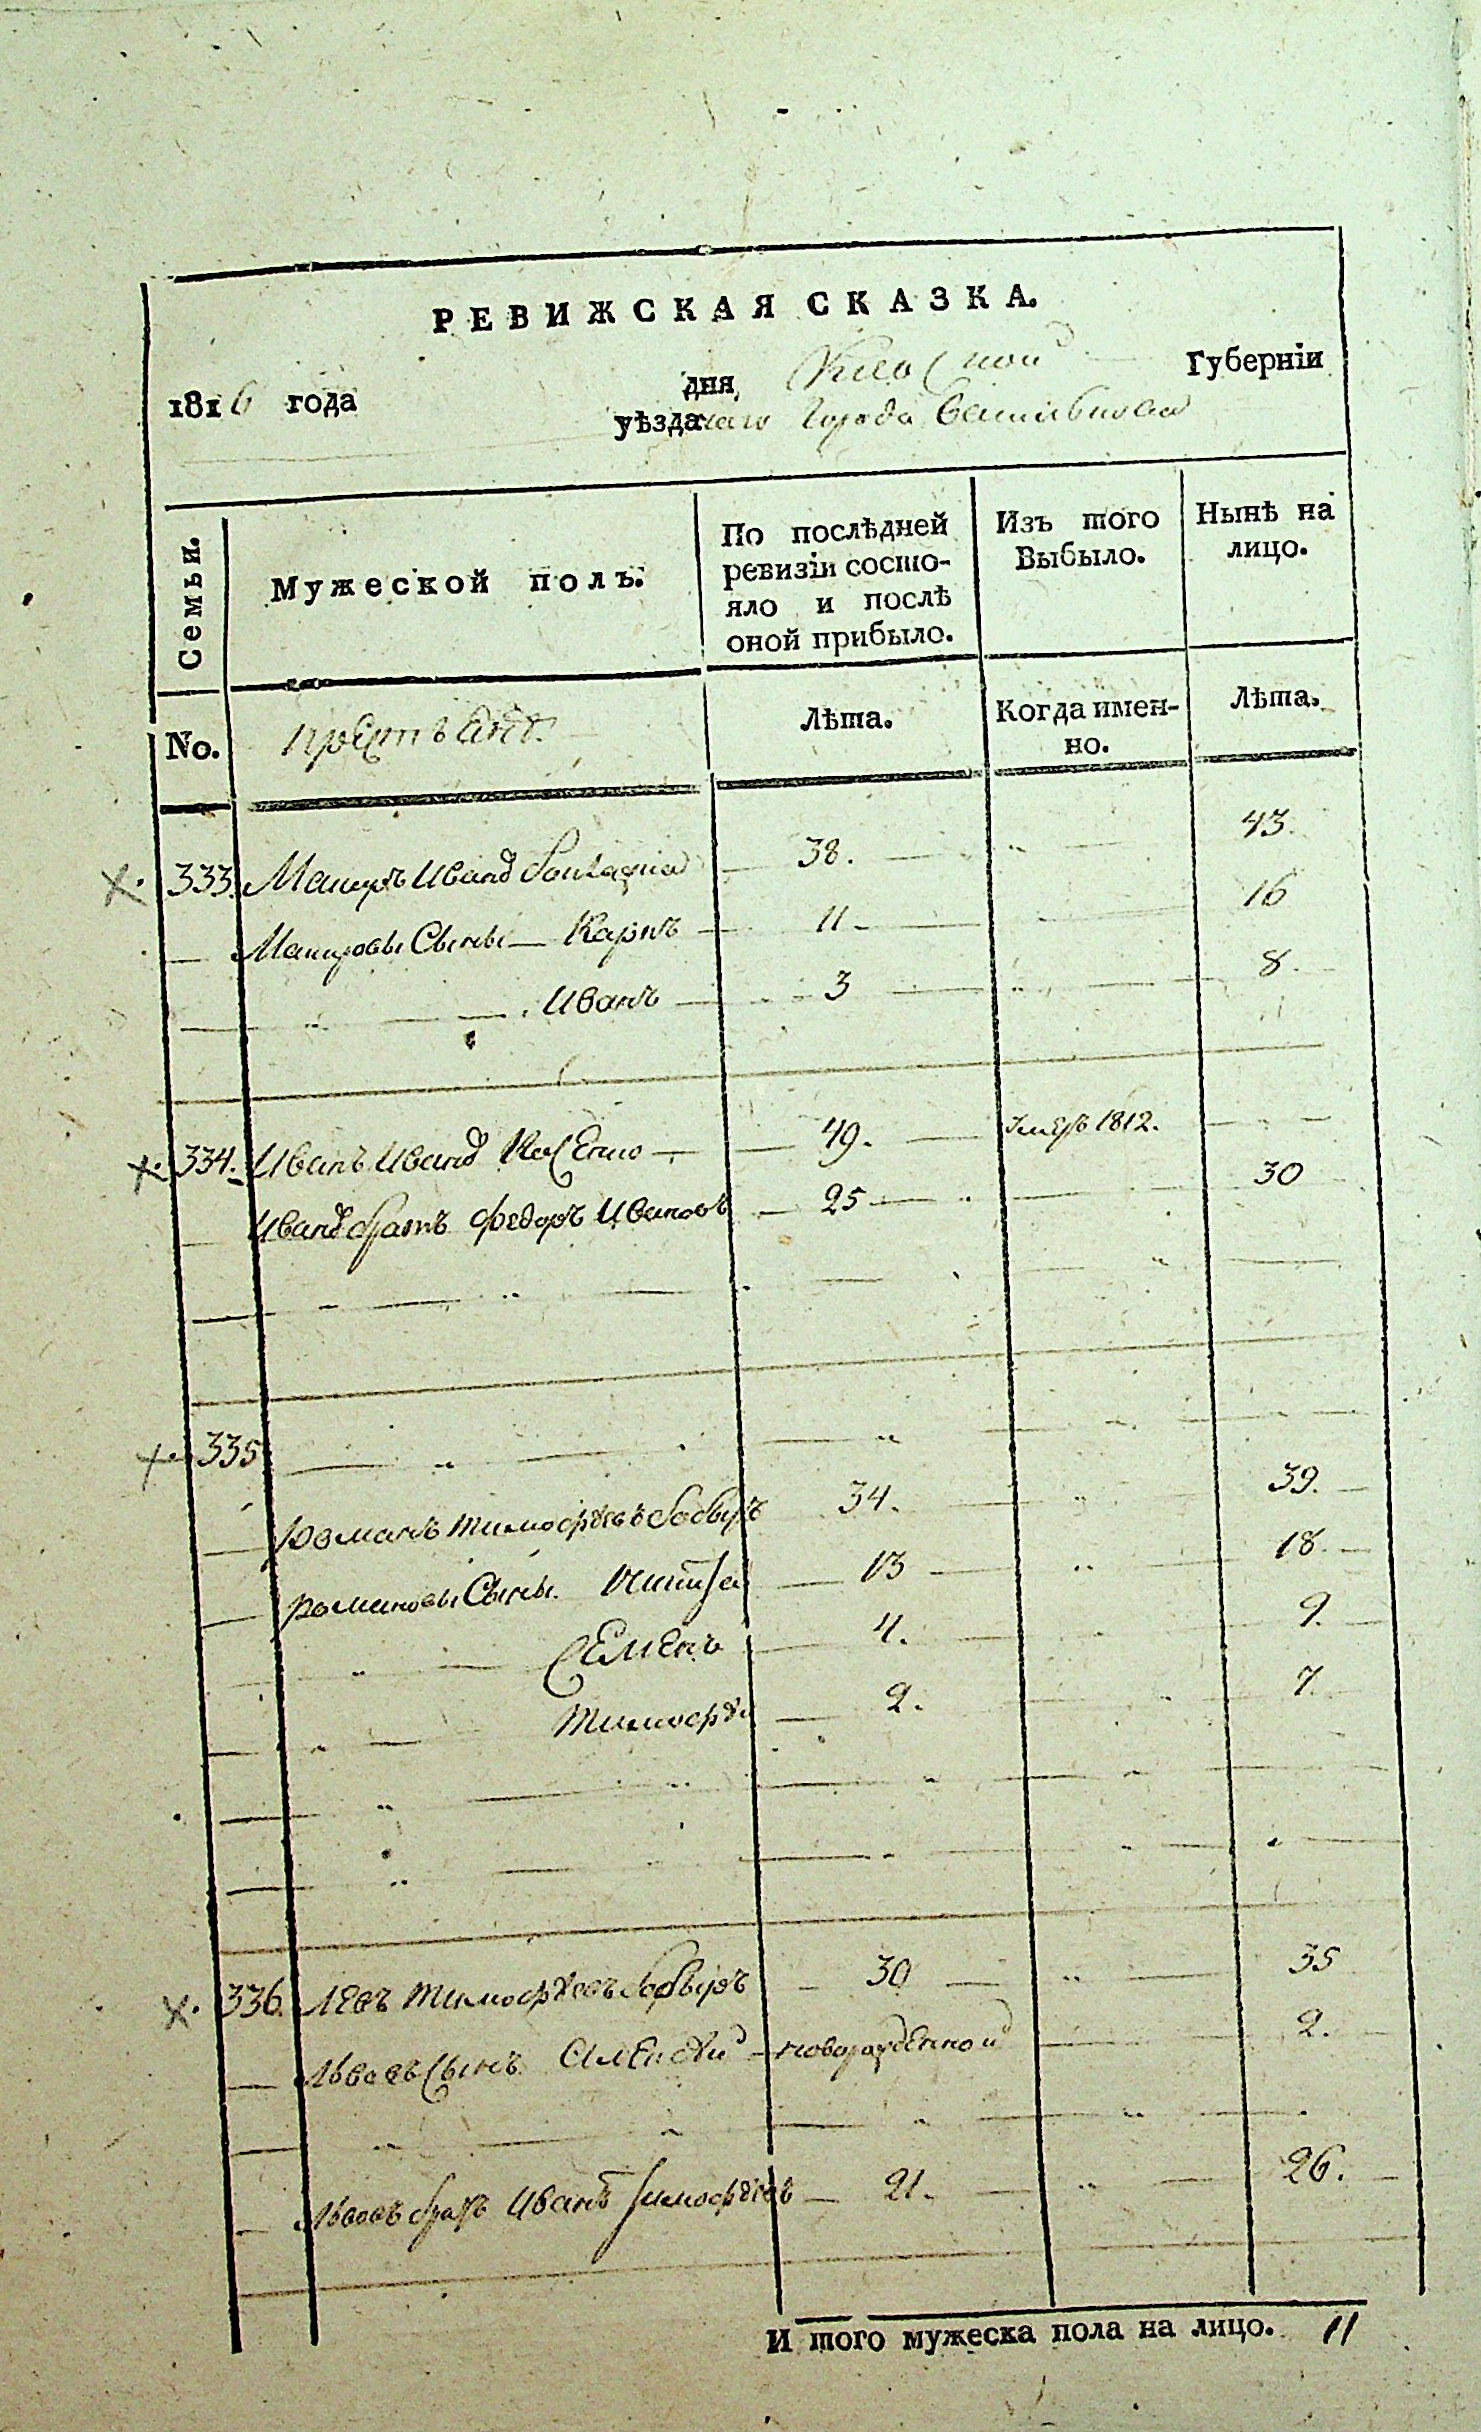 РЕВИЖСКАЯ СКАЗКА.
1816 года дня, Киевской Губерніи
уѣзда города Василькова
Семьи.
Мужеской полъ.
По послѣдней ревизіи состо-
яло и послѣ оной прибыло.
Изъ того Выбыло.
Нынѣ на лицо.
No.
Лѣта.
Когда имен-
но.
Лѣта.
333. Иванов 38. 43.
Сыны Карпъ 11 16
Иванъ 3 8.
334. Иванъ Иванов 49. 1812.
Иванов братъ Федоръ Ивановъ 25 30
335
Романъ Тимофѣевъ Бобыръ 34. 39.
Романовы Сыны. 13 18
Семенъ 4. 9.
Тимофѣй 2. 7
336. Левъ Тимофѣевъ Бобыръ 30 35
Львовъ Сынъ новорожденной 2.
Львовъ братъ Иванъ Тимофѣевъ 21. 26.
И того мужеска пола на лицо. 11